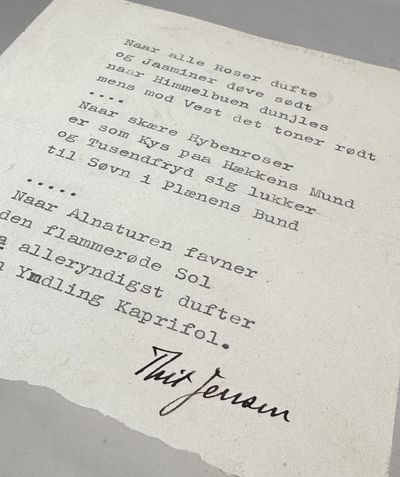 Naar alle Roser dufte
og Jasminer døve sødt
naar Himmelbuen dunjles
mens mod Vest det toner rødt
....
Naar skære Hybenroser
er som Kys paa Hækkens Mund
og Tusendfryd sig lukker
til Søvn i Plænens Bund
.....
Naar Alnaturen favner
den flammerøde Sol
alleryndigst dufter
Yndling Kaprifol.
Thit Jensen